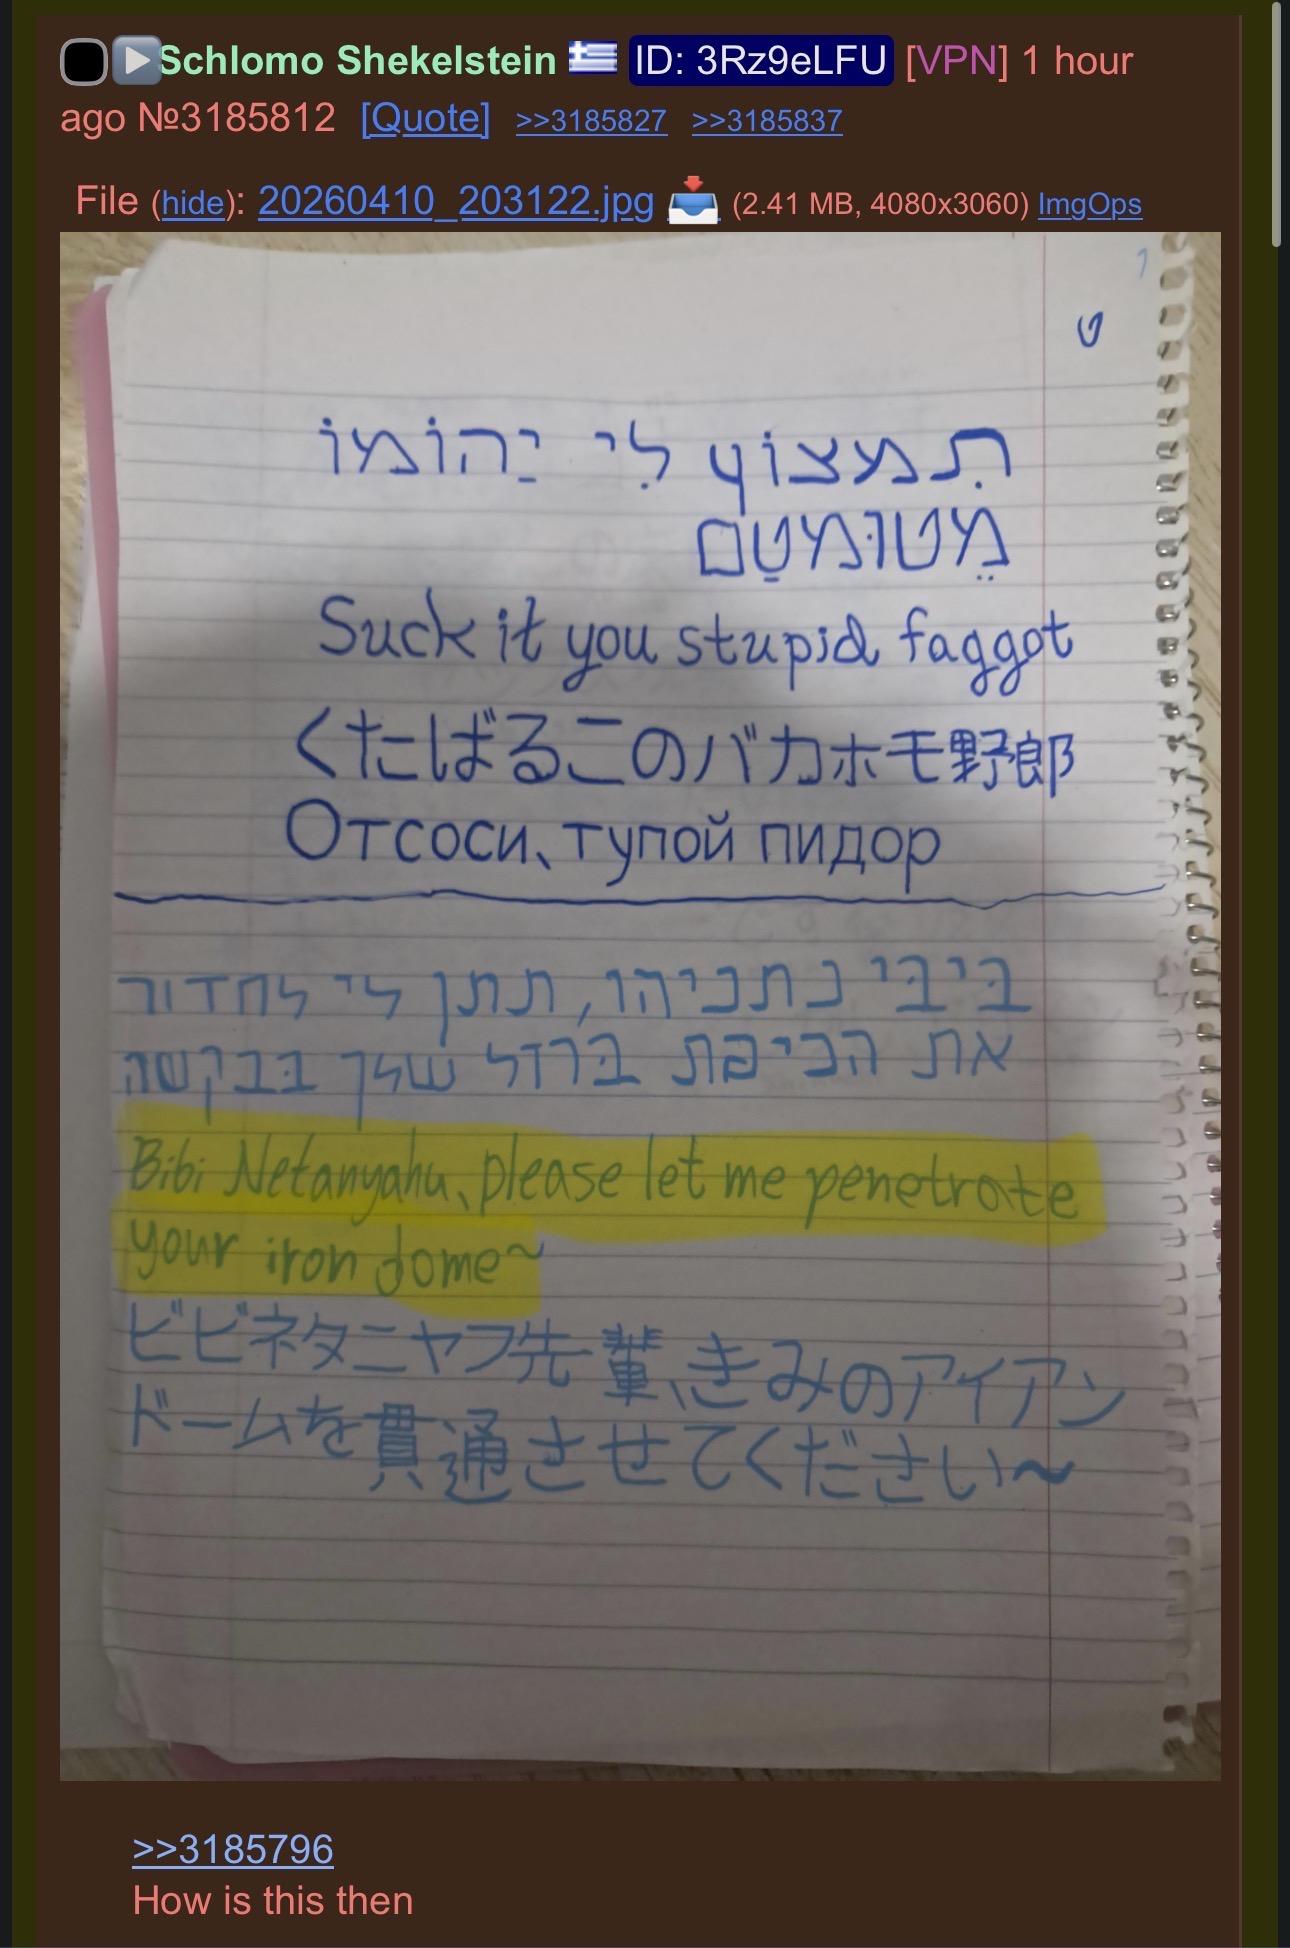 Schlomo Shekelstein ID: 3Rz9eLFU [VPN] 1 hour
ago №3185812 [Quote] >>3185827 >>3185837
File (hide): 20260410_203122.jpg (2.41 MB, 4080x3060) ImgOps
תִמצוֹץ לִי יַהוֹמוֹ
מֵטוּמטַם
Suck it you stupid faggot
くたばるこのバカホモ野郎
Отсоси、тупой пидор
בּיבּי נתניהו, תתן לי לחדור
את הכיפת בּרזל שלך בּבקשה
Bibi Netanyahu、please let me penetrate
your iron dome~
ビビネタニヤフ先輩、きみのアイアン
ドームを貫通させてください〜
>>3185796
How is this then